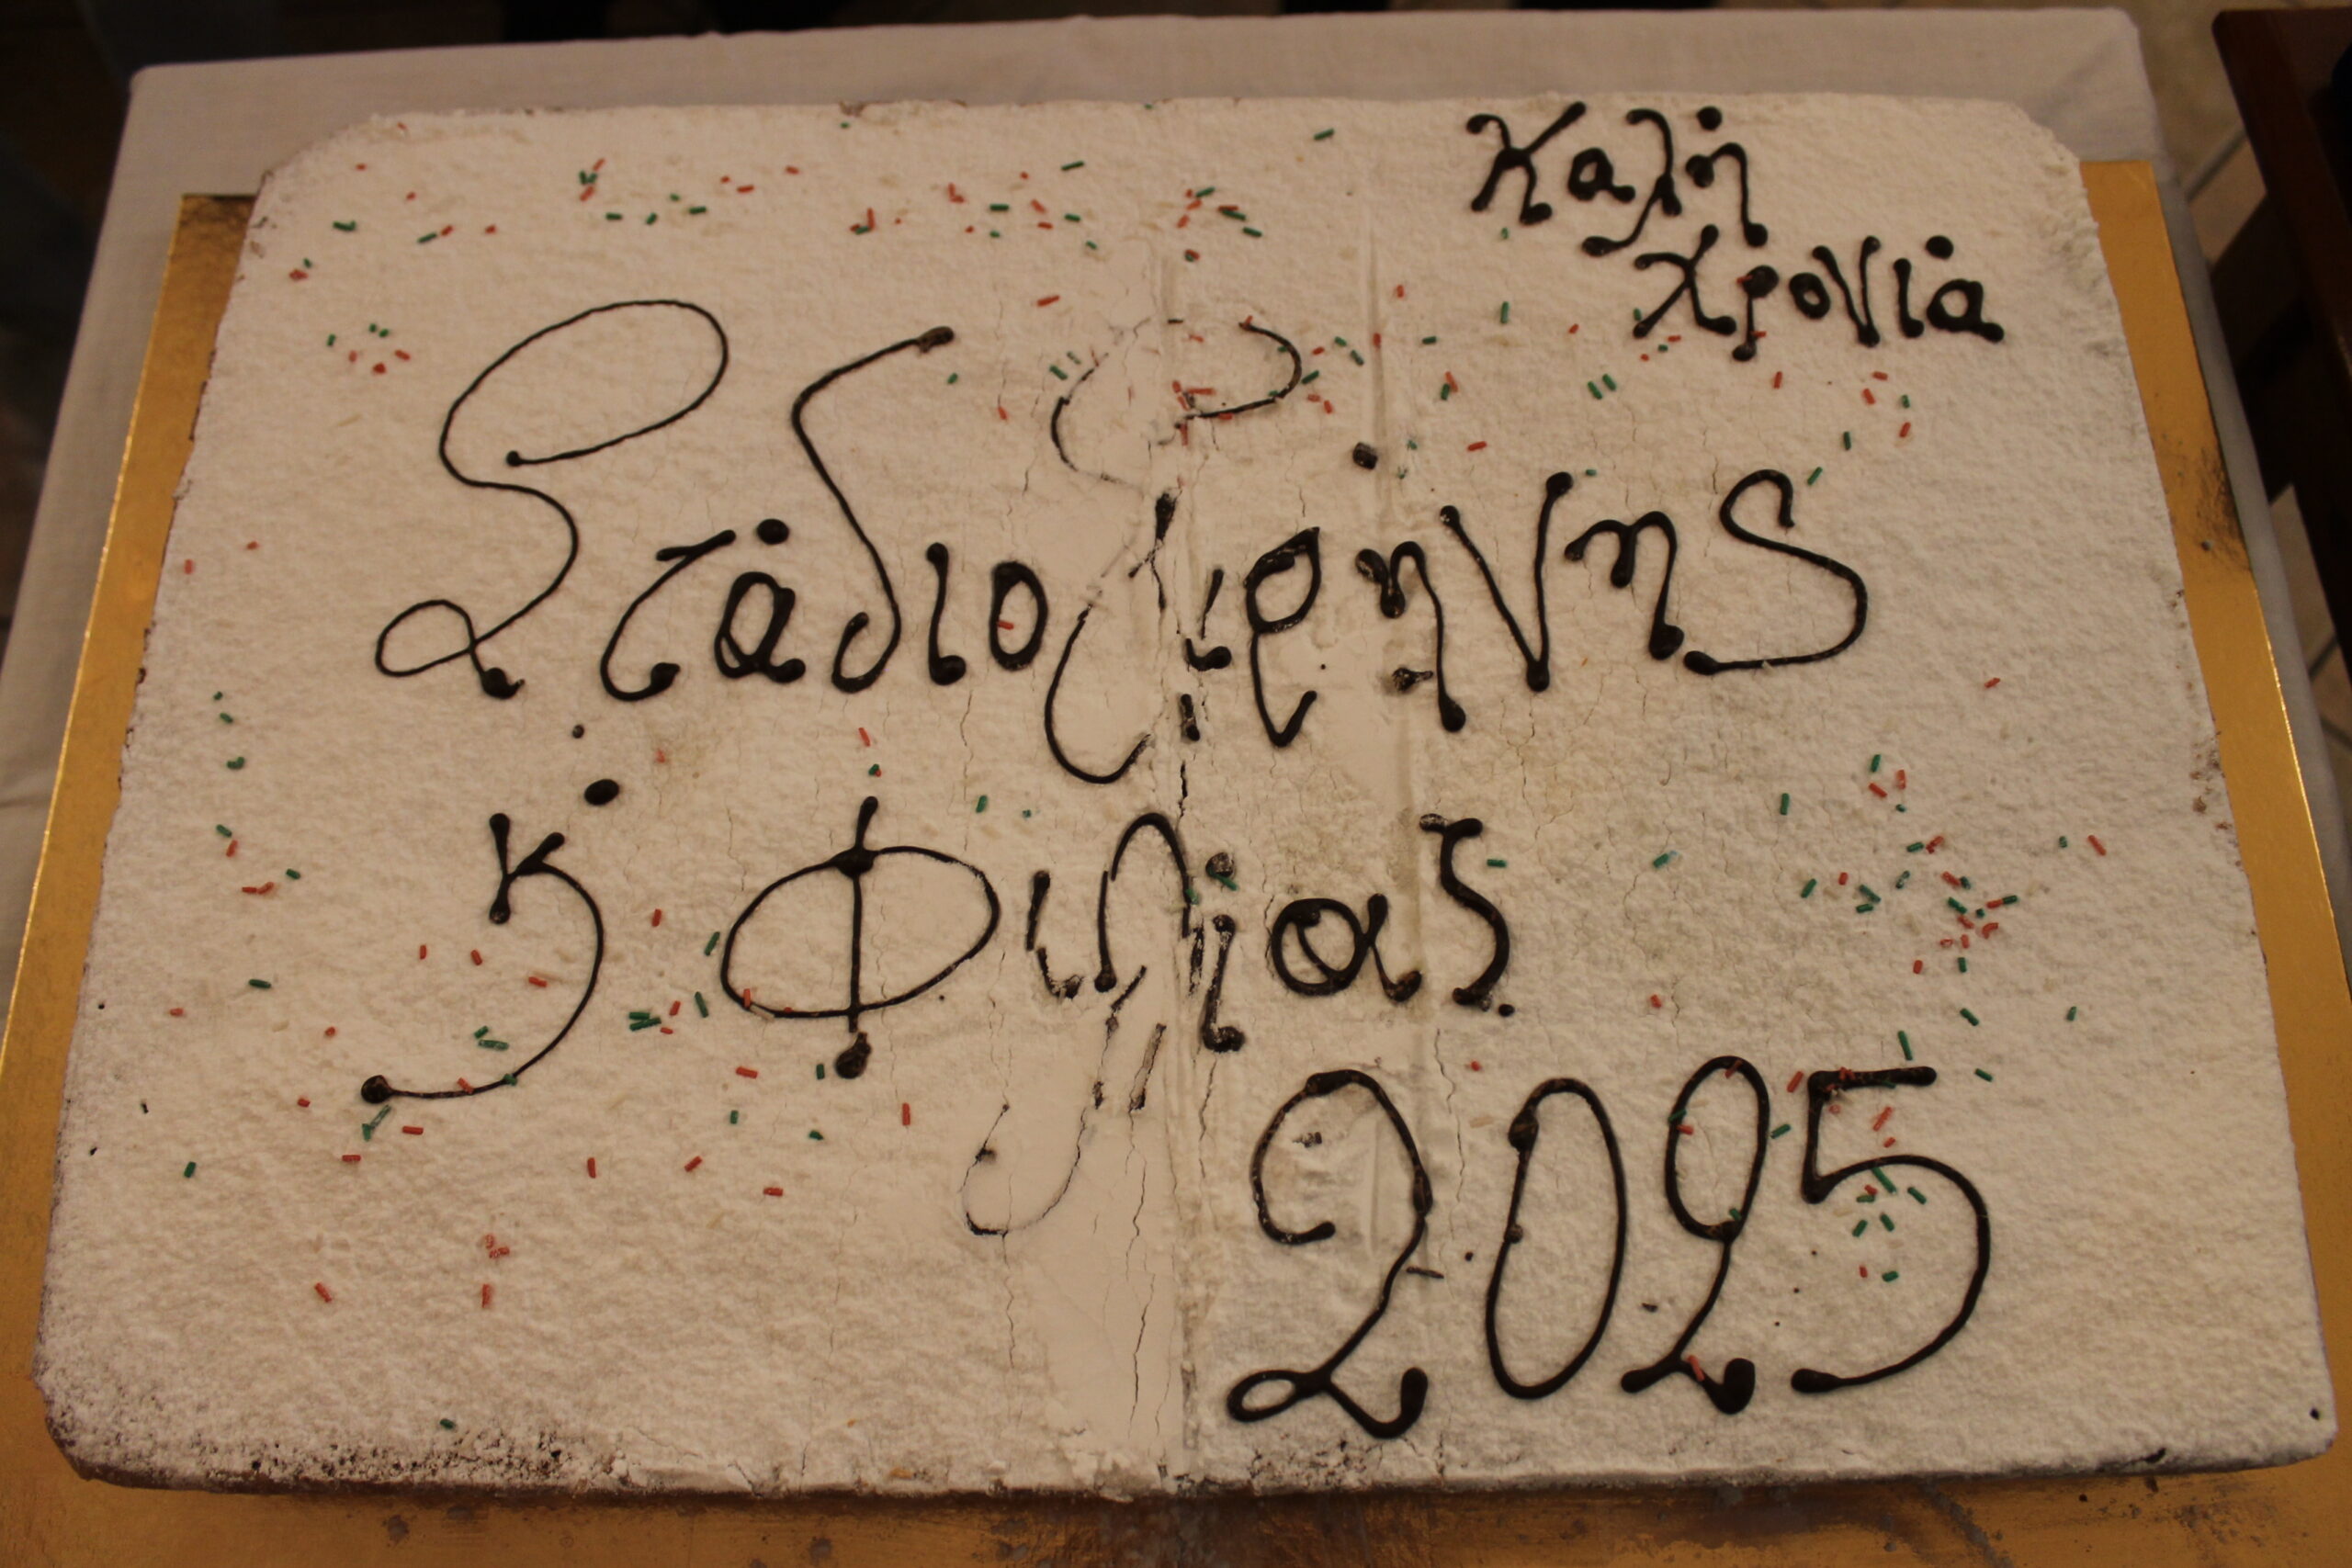 Καλή
Χρονιά
Στάδιο Ειρήνης
κ' Φιλίας
2025